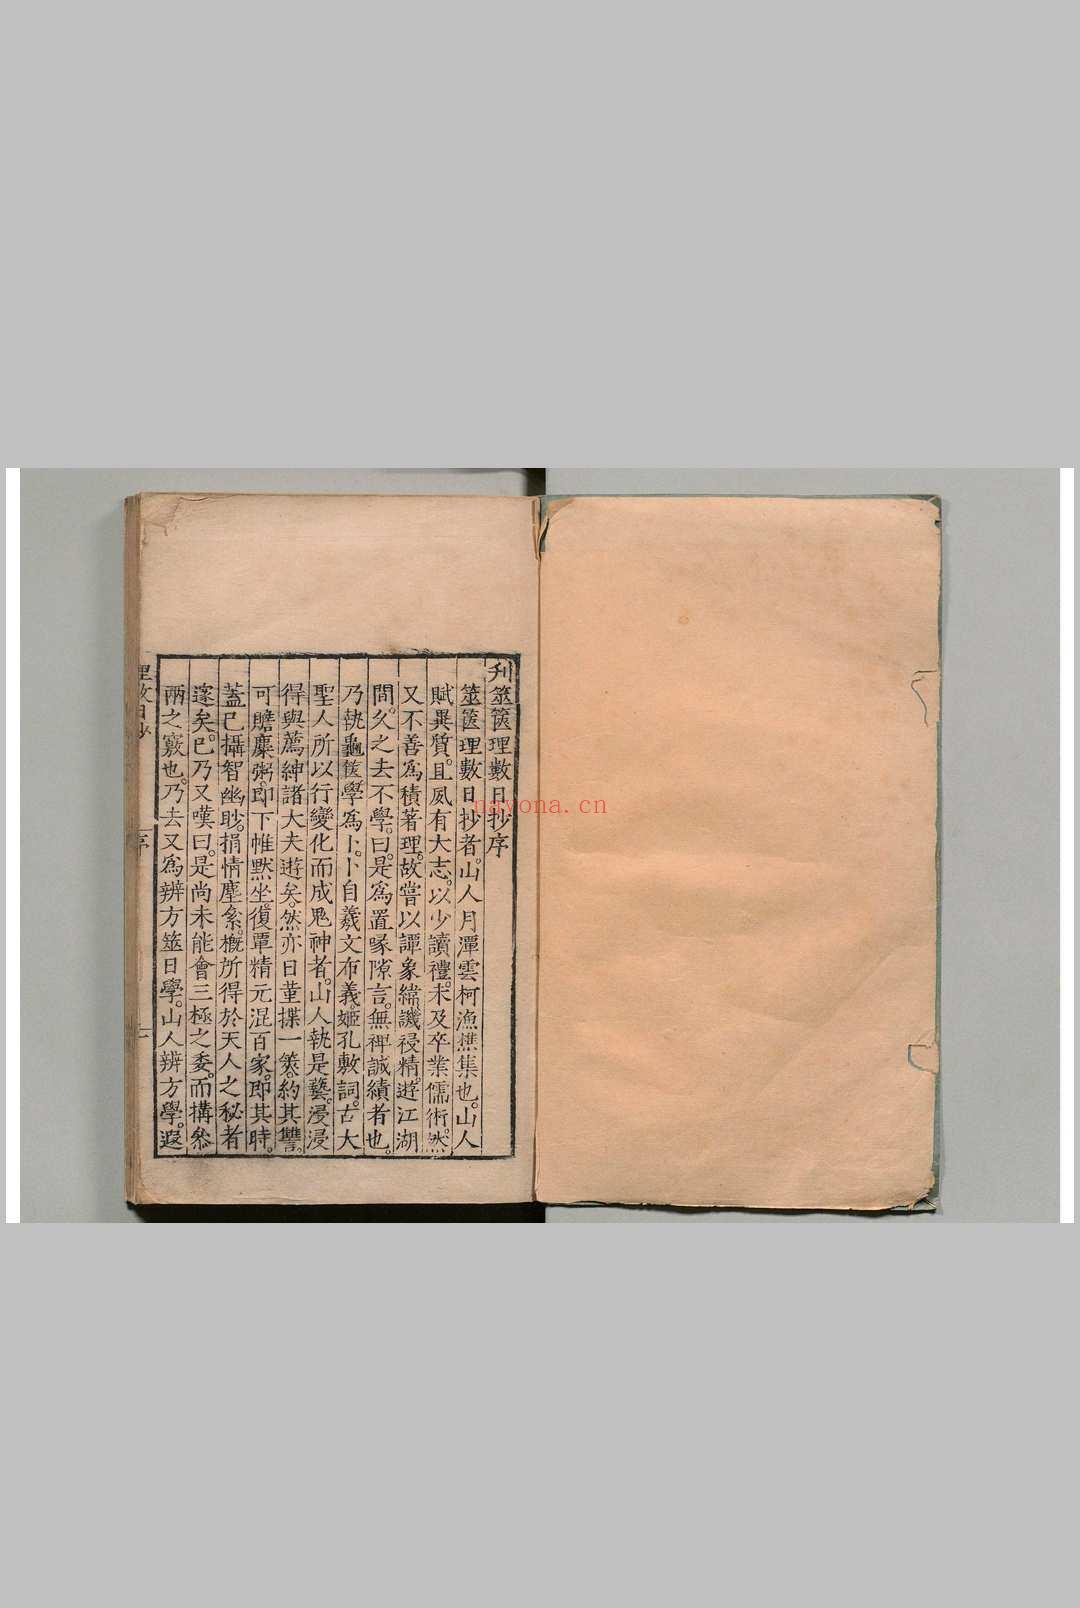 刋筮篋理數日抄序
筮篋理數日抄者。山人月潭雲柯漁樵集也。山人
賦異質。且夙有大志。以少讀禮。未及卒業儒術。然
又不善爲積著理。故嘗以譚象緯譏祲精。遊江湖
間。久之去不學。曰。是爲置喙隙言。無裨誠績者也。
乃執龜篋。學爲卜。卜自羲文布義。姬孔敷詞。古大
聖人所以行變化而成鬼神者。山人執是藝。浸浸
得與薦紳諸大夫遊矣。然亦日菫揲一筴。約其讐。
可贍麋粥。即下帷默坐。復覃精元混百家。即其時。
蓋已攝智幽眇。捐情塵絫。概所得於天人之秘者
邃矣。已乃又嘆曰。是尚未能會三極之委。而搆叅
兩之竅也。乃去又爲辨方筮日學。山人辨方學。遐
理數日抄
序
一
nayona.cn